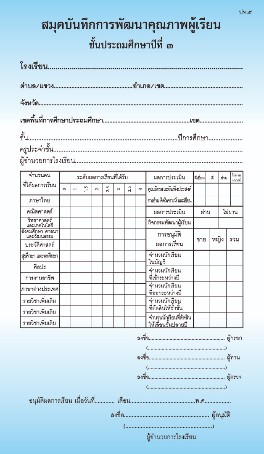 ปพ.๕
สมุดบันทึกการพัฒนาคุณภาพผู้เรียน
ชั้นประถมศึกษาปีที่ ๓
โรงเรียน
ตำบล/แขวง อำเภอ/เขต
จังหวัด
เขตพื้นที่การศึกษาประถมศึกษา เขต
ชั้น ปีการศึกษา
ครูประจำชั้น
ผู้อำนวยการโรงเรียน
จำนวนคน ที่ได้ผลการเรียน ระดับผลการเรียนที่ได้รับ ผลการประเมิน
ภาษาไทย
คณิตศาสตร์ ผลการประเมิน ผ่าน ไม่ผ่าน
วิทยาศาสตร์ และเทคโนโลยี กิจกรรมพัฒนาผู้เรียน
สังคมศึกษา ศาสนา และวัฒนธรรม การอนุมัติ ผลการเรียน ชาย หญิง รวม
ประวัติศาสตร์
สุขศึกษา และพลศึกษา จำนวนนักเรียน
ศิลปะ จำนวนนักเรียน
การงานอาชีพ
ภาษาต่างประเทศ จำนวนนักเรียน
รายวิชาเพิ่มเติม จำนวนนักเรียน
รายวิชาเพิ่มเติม
รายวิชาเพิ่มเติม
ลงชื่อ ผู้กรอก
ลงชื่อ ผู้ทาน
ลงชื่อ ผู้ตรวจ
อนุมัติผลการเรียน เมื่อวันที่ เดือน พ.ศ.
ลงชื่อ ผู้อนุมัติ
ผู้อำนวยการโรงเรียน